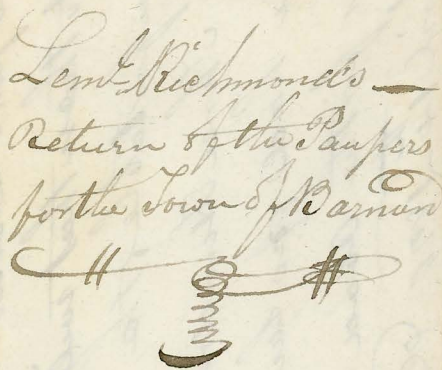 Leml. Richmond's
Return of the Paupers
for the Town of Barnard